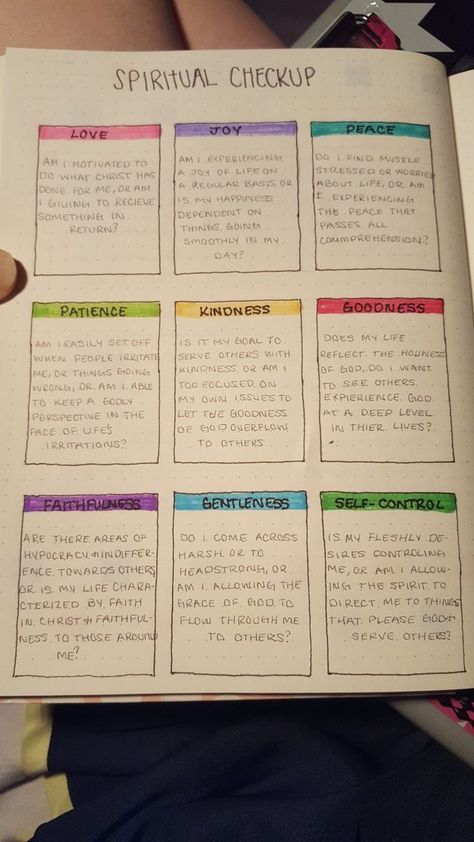 SPIRITUAL CHECKUP
LOVE
AM I MOTIVATED TO
DO WHAT CHRIST HAS
DONE FOR ME, OR AM
I GIVING TO RECIEVE
SOMETHING IN
RETURN?
JOY
AM I EXPERIENCING
A JOY OF LIFE ON
A REGULAR BASIS, OR
IS MY HAPPINESS
DEPENDENT ON
THINGS GOING
SMOOTHLY IN MY
DAY?
PEACE
DO I FIND MYSELF
STRESSED OR WORRIED
ABOUT LIFE, OR AM
I EXPERIENCING
THE PEACE THAT
PASSES ALL
COMMPREHENSION?
PATIENCE
AM I EASILY SET OFF
WHEN PEOPLE IRRITATE
ME, OR THINGS GOING
WRONG, OR AM I ABLE
TO KEEP A GODLY
PERSPECTIVE IN THE
FACE OF LIFE'S
IRRITATIONS?
KINDNESS
IS IT MY GOAL TO
SERVE OTHERS WITH
KINDNESS, OR AM I
TOO FOCUSED ON
MY OWN ISSUES TO
LET THE GOODNESS
OF GOD OVERFLOW
TO OTHERS
GOODNESS
DOES MY LIFE
REFLECT THE HOLINESS
OF GOD, DO I WANT
TO SEE OTHERS
EXPERIENCE GOD
AT A DEEP LEVEL
IN THIER LIVES?
FAITHFULNESS
ARE THERE AREAS OF
HYPOCRACY & INDIFFER-
ENCE TOWARDS OTHERS
OR IS MY LIFE CHARA-
CTERIZED BY FAITH
IN CHRIST & FAITHFUL-
NESS TO THOSE AROUND
ME?
GENTLENESS
DO I COME ACROSS
HARSH OR TO
HEADSTRONG, OR
AM I ALLOWING THE
GRACE OF GOD TO
FLOW THROUGH ME
TO OTHERS?
SELF-CONTROL
IS MY FLESHLY DE-
SIRES CONTROLING
ME, OR AM I ALLOW-
ING THE SPIRIT TO
DIRECT ME TO THINGS
THAT PLEASE GOD &
SERVE OTHERS?